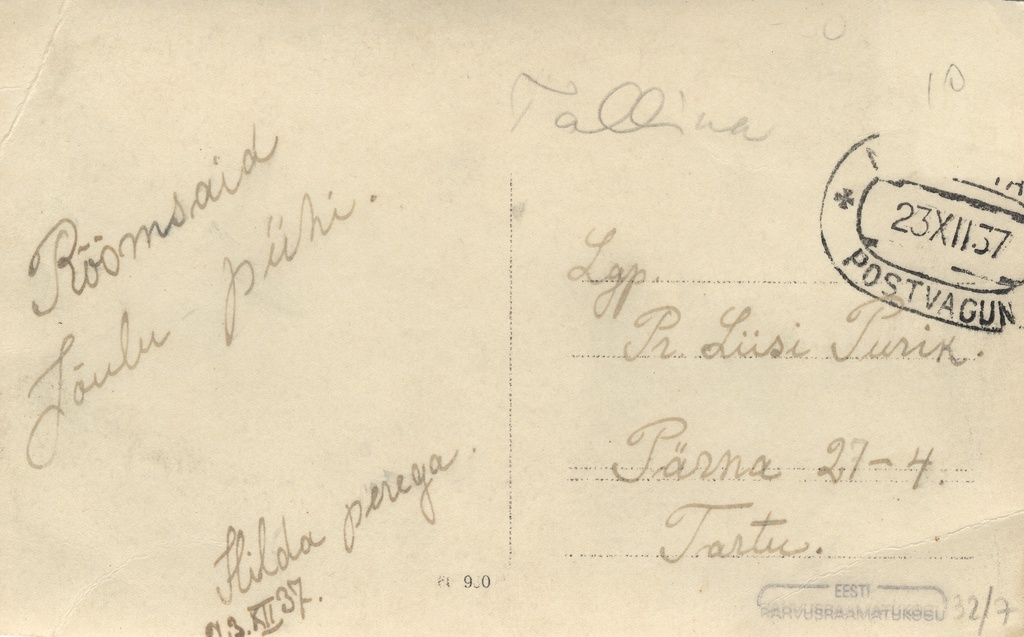 Rõõmsaid
Jõulu pühi.
Hilda perega.
23.XII 37.
Tallinna
10
23XII37
POSTVAGUN
Lgp.
Pr. Liisi Purik.
Pärna 27-4.
Tartu.
EESTI
RAHVUSRAAMATUKOGU
32/7